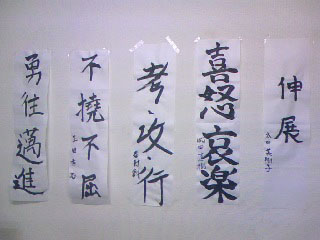 伸展
喜怒哀楽
考、攻、行
不撓不屈
勇往邁進